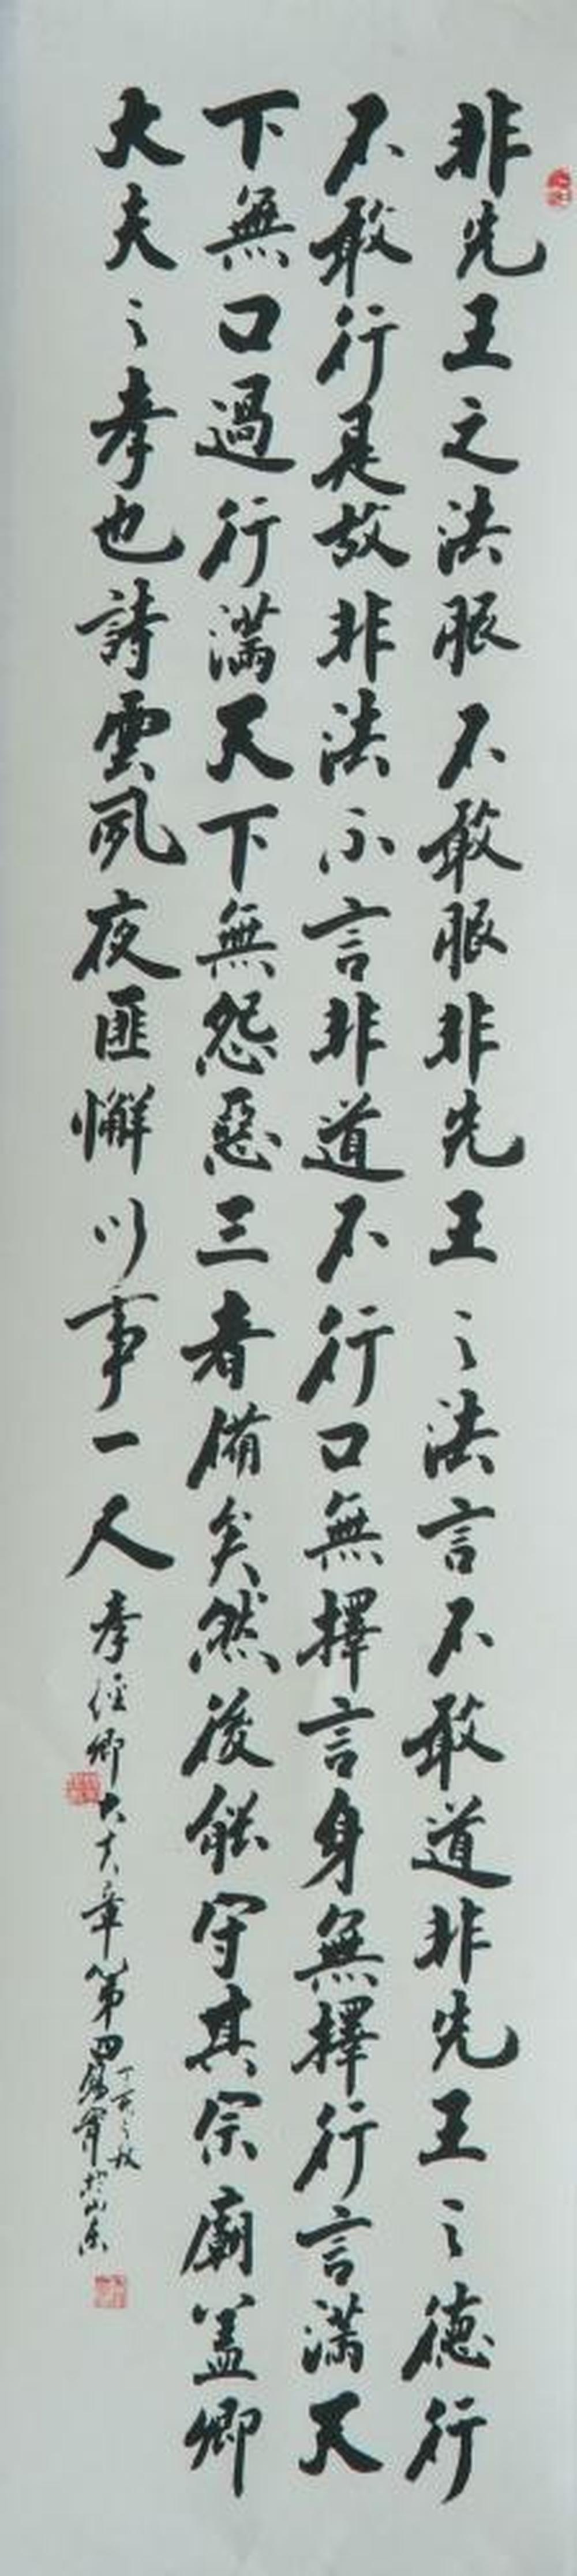 非先王之法服不敢服非先王之法言不敢道非先王之德行
不敢行是故非法不言非道不行口無擇言身無擇行言满天
下無口過行满天下無怨惡三者備矣然後能守其宗廟盖卿
大夫之孝也詩雲夙夜匪懈以事一人孝經卿大夫章第四
丁亥之秋
於山東